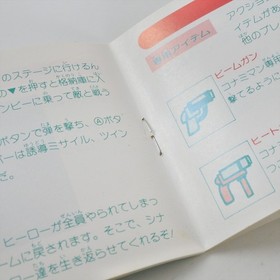 のステージに行けるん
の▼を押すと格納庫に入
ンビーに乗って敵と戦う
ボタンで弾を撃ち、Ⓐボタ
ーは誘導ミサイル、ツイン
ヒーローが全員やられてしまっ
ームに戻されます。そこで、シナ
ーロー達を生き返らせてくれるぞ!
アクショ
イテムがあ
他のプレ
専用アイテム
ビームガン
コナミマン専用
撃てるように
ヒート
コナミ